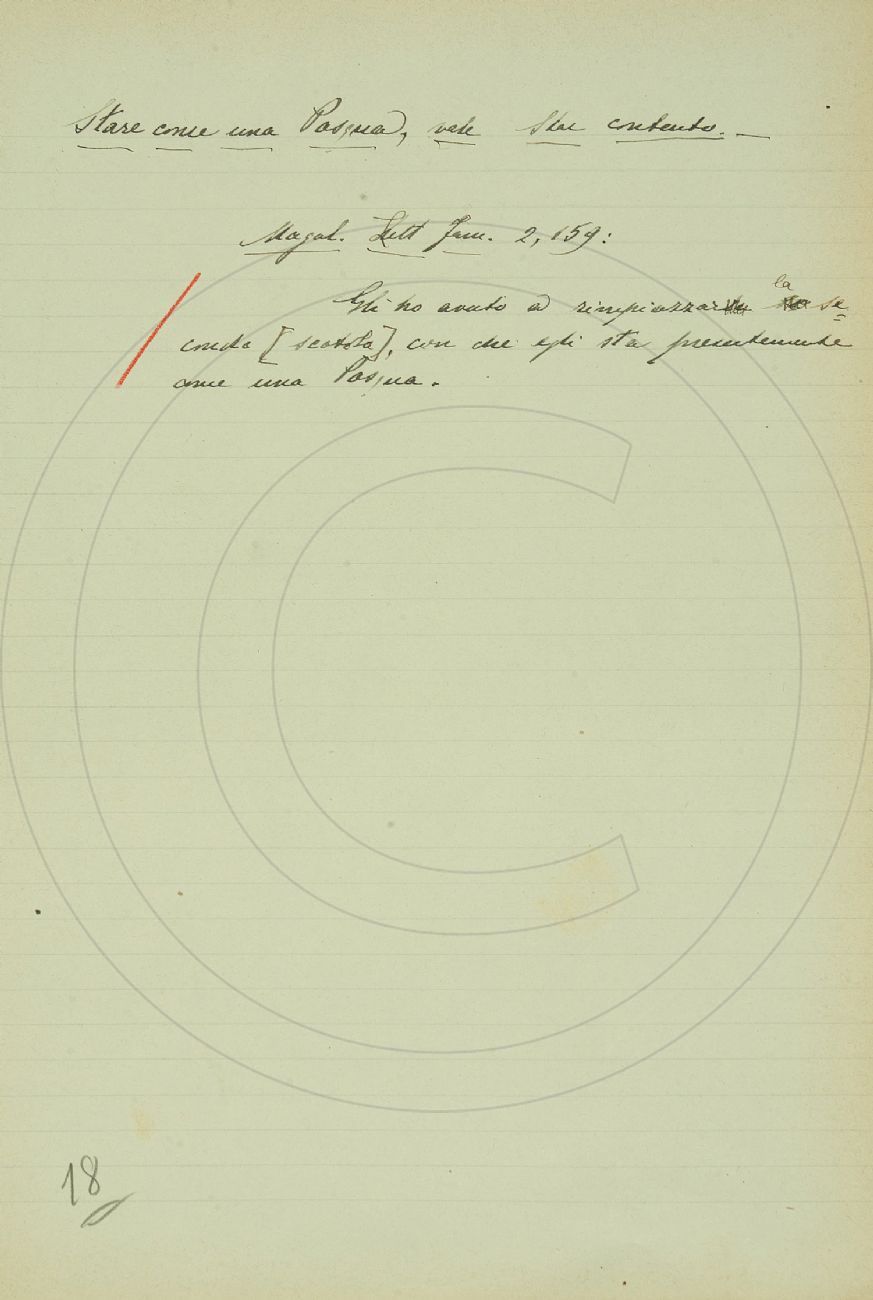 Stare come una Pasqua, vale Star contento. —
Magal. Lett. Fam. 2, 159:
Gli ho avuto a rimpiazzar la se=
conda [scatola], con che egli sta presentemente
come una Pasqua.
18